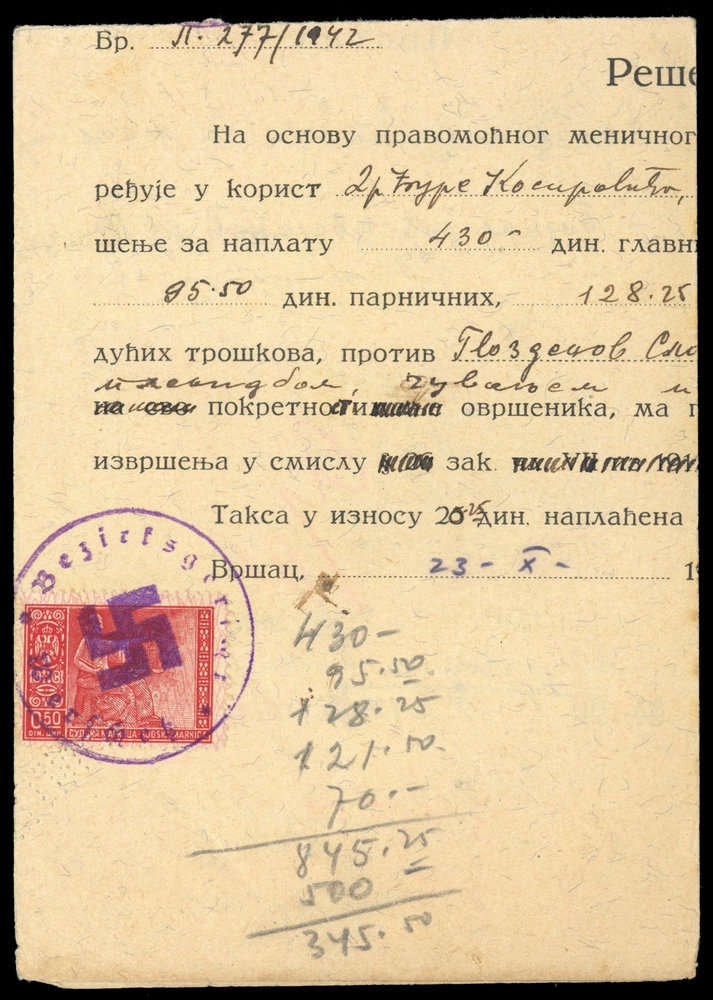 Бр. П. 277/1942
Реше
На основу правомоћног меничног
ређује у корист Др Ђуре Косировића,
шење за наплату 430- дин. главн
95.50 дин. парничних, 128.25
дућих трошкова, против Гвозденов
пленидбом, чувањем и
покретности овршеника, ма
извршења у смислу зак.
Такса у износу дин. наплаћена
Вршац, 23-X- 19
Bezirksgericht
0.50
СУДСКА МАРКА-SUDSKA MARKICA
430-
95.50
128.25
121.50
70.-
845.25
500 =
345.50